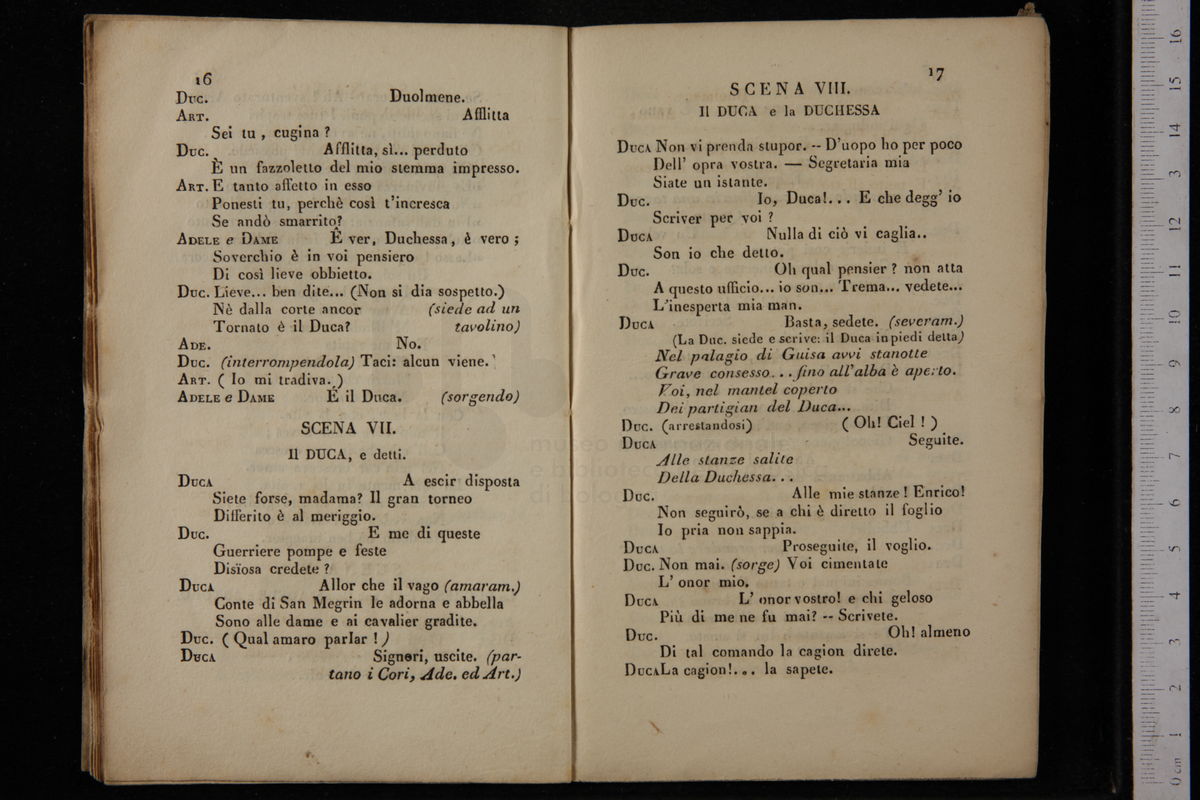 16
Duc. Duolmene.
Art. Afflitta
Sei tu, cugina ?
Duc. Afflitta, sì... perduto
È un fazzoletto del mio stemma impresso.
Art. E tanto affetto in esso
Ponesti tu, perchè così t'incresca
Se andò smarrito?
Adele e Dame È ver, Duchessa, è vero ;
Soverchio è in voi pensiero
Di così lieve obbietto.
Duc. Lieve... ben dite... (Non si dia sospetto.)
Nè dalla corte ancor (siede ad un
Tornato è il Duca? tavolino)
Ade. No.
Duc. (interrompendola) Taci: alcun viene.
Art. ( Io mi tradiva. )
Adele e Dame È il Duca. (sorgendo)
SCENA VII.
Il DUCA, e detti.
Duca A escir disposta
Siete forse, madama? Il gran torneo
Differito è al meriggio.
Duc. E me di queste
Guerriere pompe e feste
Disïosa credete ?
Duca Allor che il vago (amaram.)
Conte di San Megrin le adorna e abbella
Sono alle dame e ai cavalier gradite.
Duc. ( Qual amaro parlar ! )
Duca Signori, uscite. (par-
tano i Cori, Ade. ed Art.)
17
SCENA VIII.
Il DUCA e la DUCHESSA
Duca Non vi prenda stupor. -- D'uopo ho per poco
Dell' opra vostra. — Segretaria mia
Siate un istante.
Duc. Io, Duca!... E che degg' io
Scriver per voi ?
Duca Nulla di ciò vi caglia..
Son io che detto.
Duc. Oh qual pensier ? non atta
A questo ufficio... io son... Trema... vedete...
L'inesperta mia man.
Duca Basta, sedete. (severam.)
(La Duc. siede e scrive: il Duca in piedi detta)
Nel palagio di Guisa avvi stanotte
Grave consesso... fino all'alba è aperto.
Voi, nel mantel coperto
Dei partigian del Duca...
Duc. (arrestandosi) ( Oh! Ciel ! )
Duca Seguite.
Alle stanze salite
Della Duchessa...
Duc. Alle mie stanze ! Enrico!
Non seguirò, se a chi è diretto il foglio
Io pria non sappia.
Duca Proseguite, il voglio.
Duc. Non mai. (sorge) Voi cimentate
L' onor mio.
Duca L' onor vostro! e chi geloso
Più di me ne fu mai? -- Scrivete.
Duc. Oh! almeno
Di tal comando la cagion direte.
Duca La cagion!... la sapete.